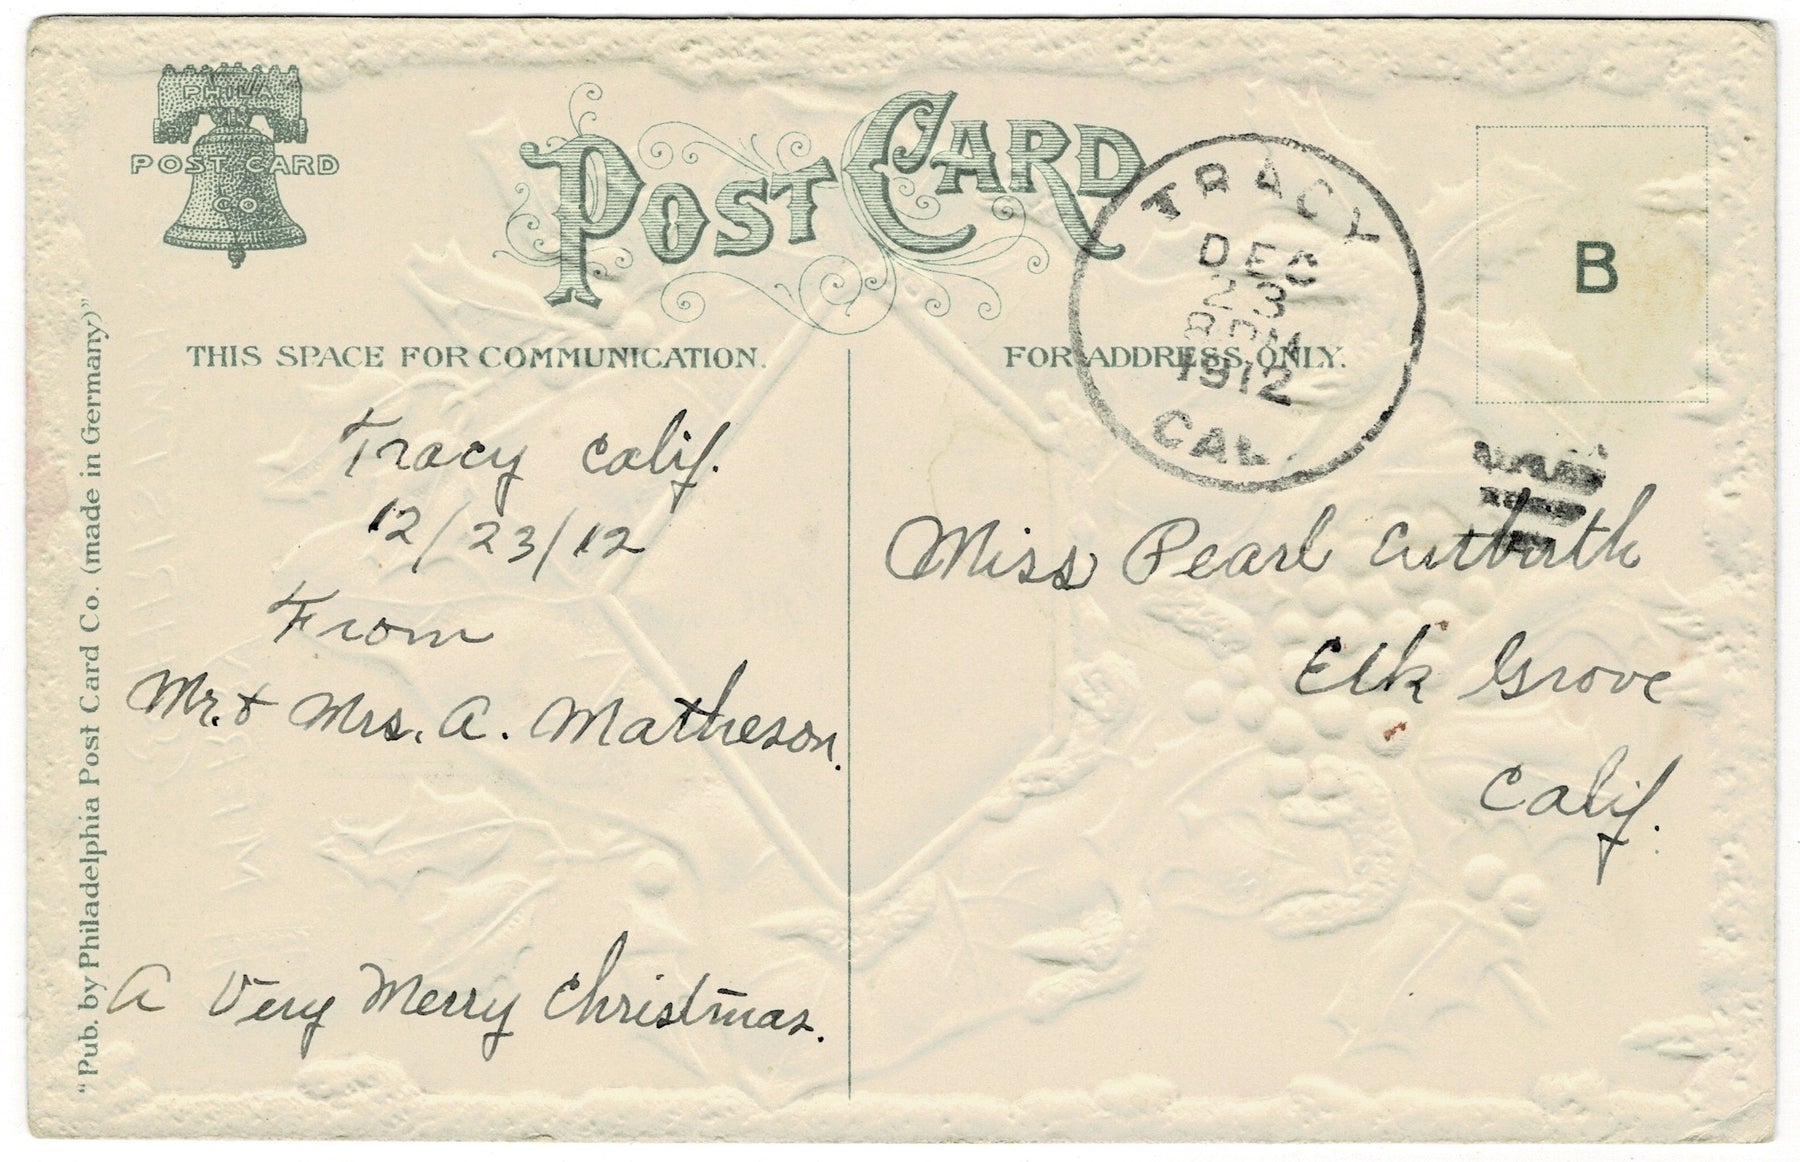 PHILA
POST CARD
CO
POST CARD
TRACY
DEC
23
8 PM
1912
CAL.
B
THIS SPACE FOR COMMUNICATION.
FOR ADDRESS ONLY.
Tracy Calif.
12/23/12
From
Mr. & Mrs. A. Matheson.
A Very Merry Christmas.
Miss Pearl Cutbirth
Elk Grove
Calif.
"Pub. by Philadelphia Post Card Co. (made in Germany)"